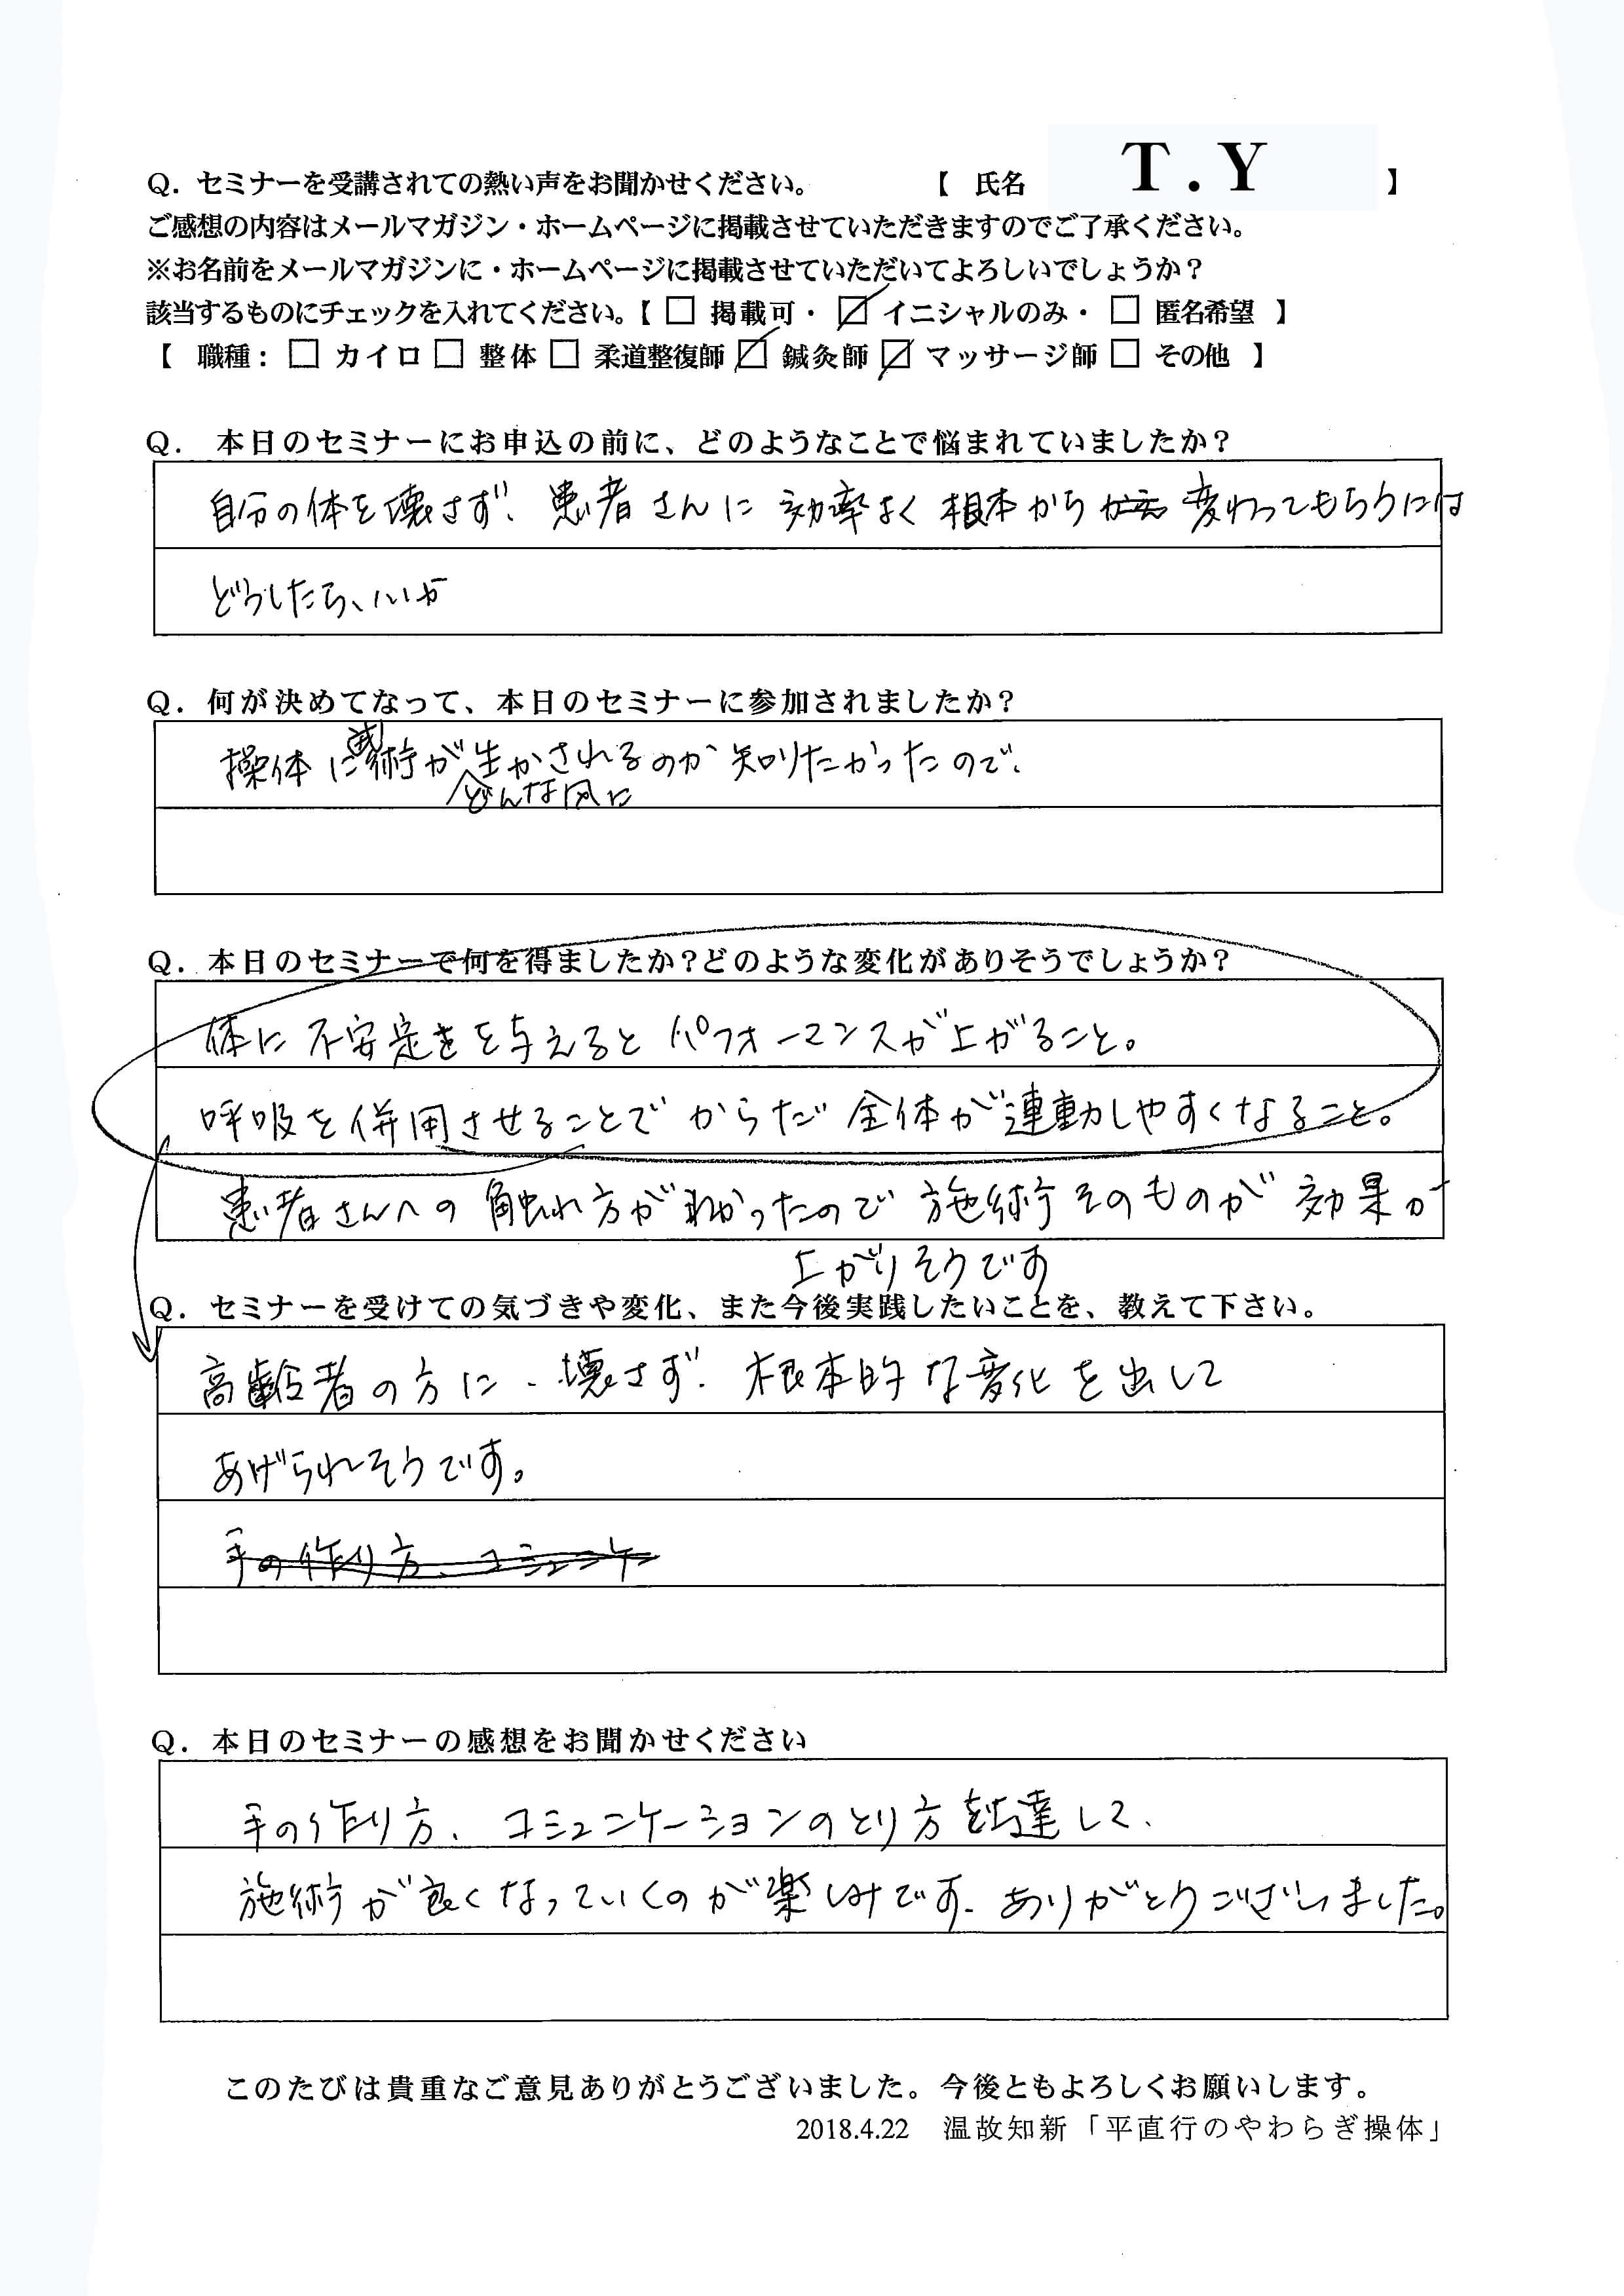 Q. セミナーを受講されての熱い声をお聞かせください。 【 氏名 T.Y 】
ご感想の内容はメールマガジン・ホームページに掲載させていただきますのでご了承ください。
※お名前をメールマガジンに・ホームページに掲載させていただいてよろしいでしょうか？
該当するものにチェックを入れてください。【 □ 掲載可・ ☑ イニシャルのみ・ □ 匿名希望 】
【 職種： □ カイロ □ 整体 □ 柔道整復師 ☑ 鍼灸師 ☑ マッサージ師 □ その他 】
Q. 本日のセミナーにお申込の前に、どのようなことで悩まれていましたか？
自分の体を壊さず、患者さんに 効率よく 根本から 変わってもらうには
どうしたら、いいか
Q. 何が決めてなって、本日のセミナーに参加されましたか？
操体に武術がどんな風に生かされるのか知りたかったので、
Q. 本日のセミナーで何を得ましたか？どのような変化がありそうでしょうか？
体に不安定さを与えるとパフォーマンスが上がること。
呼吸を併用させることでからだ全体が連動しやすくなること。
患者さんへの触れ方がわかったので施術そのものが効果が
上がりそうです
Q. セミナーを受けての気づきや変化、また今後実践したいことを、教えて下さい。
高齢者の方に、壊さず、根本的な変化を出して
あげられそうです。
手の作り方、コミュニケ
Q. 本日のセミナーの感想をお聞かせください
手の作り方、コミュニケーションのとり方を 達して、
施術が良くなっていくのが楽しみです、ありがとうございました。
このたびは貴重なご意見ありがとうございました。今後ともよろしくお願いします。
2018.4.22 温故知新「平直行のやわらぎ操体」